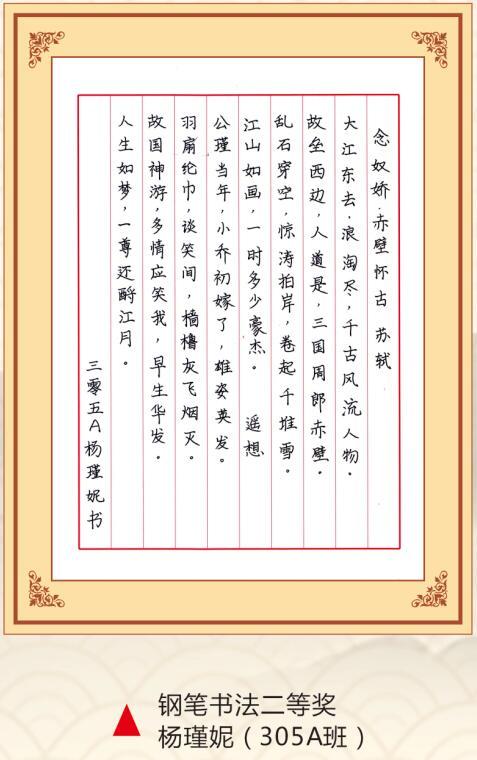 念奴娇·赤壁怀古 苏轼
大江东去，浪淘尽，千古风流人物。
故垒西边，人道是，三国周郎赤壁。
乱石穿空，惊涛拍岸，卷起千堆雪。
江山如画，一时多少豪杰。 遥想
公瑾当年，小乔初嫁了，雄姿英发。
羽扇纶巾，谈笑间，樯橹灰飞烟灭。
故国神游，多情应笑我，早生华发。
人生如梦，一尊还酹江月。
三零五A杨瑾妮书
钢笔书法二等奖
杨瑾妮（305A班）